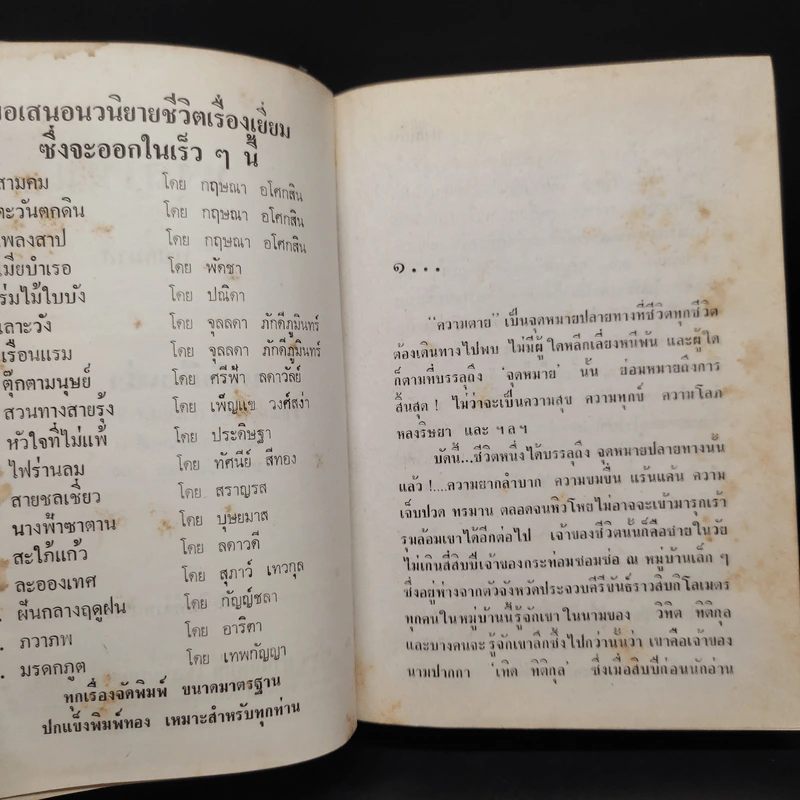 ขอเสนอนวนิยายชีวิตเรื่องเยี่ยม
ซึ่งจะออกในเร็ว ๆ นี้
สามคม โดย กฤษณา อโศกสิน
ตะวันตกดิน โดย กฤษณา อโศกสิน
เพลงสาป โดย กฤษณา อโศกสิน
เมียบำเรอ โดย พัดชา
ร่มไม้ใบบัง โดย ปณิดา
เลาะวัง โดย จุลลดา ภักดีภูมินทร์
เรือนแรม โดย จุลลดา ภักดีภูมินทร์
ตุ๊กตามนุษย์ โดย ศรีฟ้า ลดาวัลย์
สวนทางสายรุ้ง โดย เพ็ญแข วงศ์สง่า
หัวใจที่ไม่แพ้ โดย ประดิษฐา
ไฟร่านลม โดย ทัศนีย์ สีทอง
สายชลเชี่ยว โดย สราญรส
นางฟ้าซาตาน โดย บุษยมาส
สะใภ้แก้ว โดย ลดาวดี
ละอองเทศ โดย สุภาว์ เทวกุล
. ฝนกลางฤดูฝน โดย กัญญ์ชลา
. ภวาภพ โดย อาริตา
. มรดกภูต โดย เทพกัญญา
ทุกเรื่องจัดพิมพ์ ขนาดมาตรฐาน
ปกแข็งพิมพ์ทอง เหมาะสำหรับทุกท่าน
๑...
“ความตาย” เป็นจุดหมายปลายทางที่ชีวิตทุกชีวิต
ต้องเดินทางไปพบ ไม่มีผู้ใดหลีกเลี่ยงหนีพ้น และผู้ใด
ก็ตามที่บรรลุถึง ‘จุดหมาย’ นั้น ย่อมหมายถึงการ
สิ้นสุด! ไม่ว่าจะเป็นความสุข ความทุกข์ ความโลภ
หลงริษยา และ ฯลฯ
บัดนี้...ชีวิตหนึ่งได้บรรลุถึง จุดหมายปลายทางนั้น
แล้ว!....ความยากลำบาก ความขมขื่น แร้นแค้น ความ
เจ็บปวด ทรมาน ตลอดจนหิวโหยไม่อาจจะเข้ามารุกเร้า
รุมล้อมเขาได้อีกต่อไป เจ้าของชีวิตนั้นก็คือชายในวัย
ไม่เกินสี่สิบปีเจ้าของกระท่อมซอมซ่อ ณ หมู่บ้านเล็ก ๆ
ซึ่งอยู่ห่างจากตัวจังหวัดประจวบคีรีขันธ์ราวสิบกิโลเมตร
ทุกคนในหมู่บ้านนี้รู้จักเขาในนามของ วิทิต ทิติกุล
และบางคนจะรู้จักเขาลึกซึ้งไปกว่านั้นว่า เขาคือเจ้าของ
นามปากกา ‘เทิด ทิติกุล’ ซึ่งเมื่อสิบปีก่อนนักอ่าน